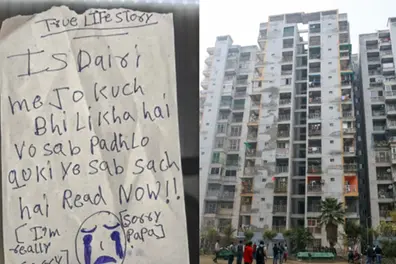 True Life Story
Is Dairi
me Jo kuch
Bhi Likha hai
vo sab Padhlo
quki ye sab sach
hai Read Now!!
[I'm
really
sorry]
[sorry
Papa]